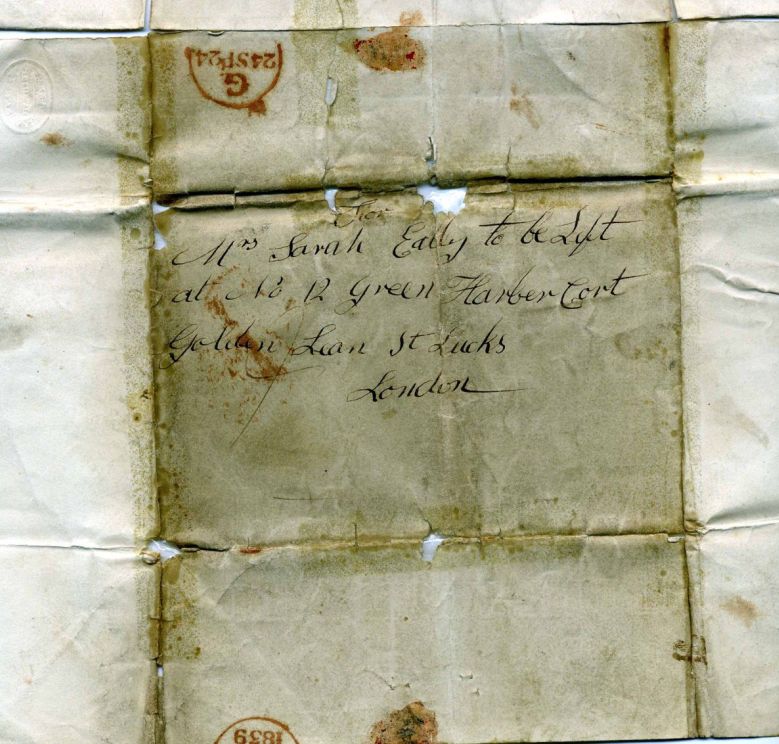 G
24SP24
For
Mrs Sarah Eatly to be Left
at No 12 Green Harber Cort
Golden Lean St Lucks
London
1839